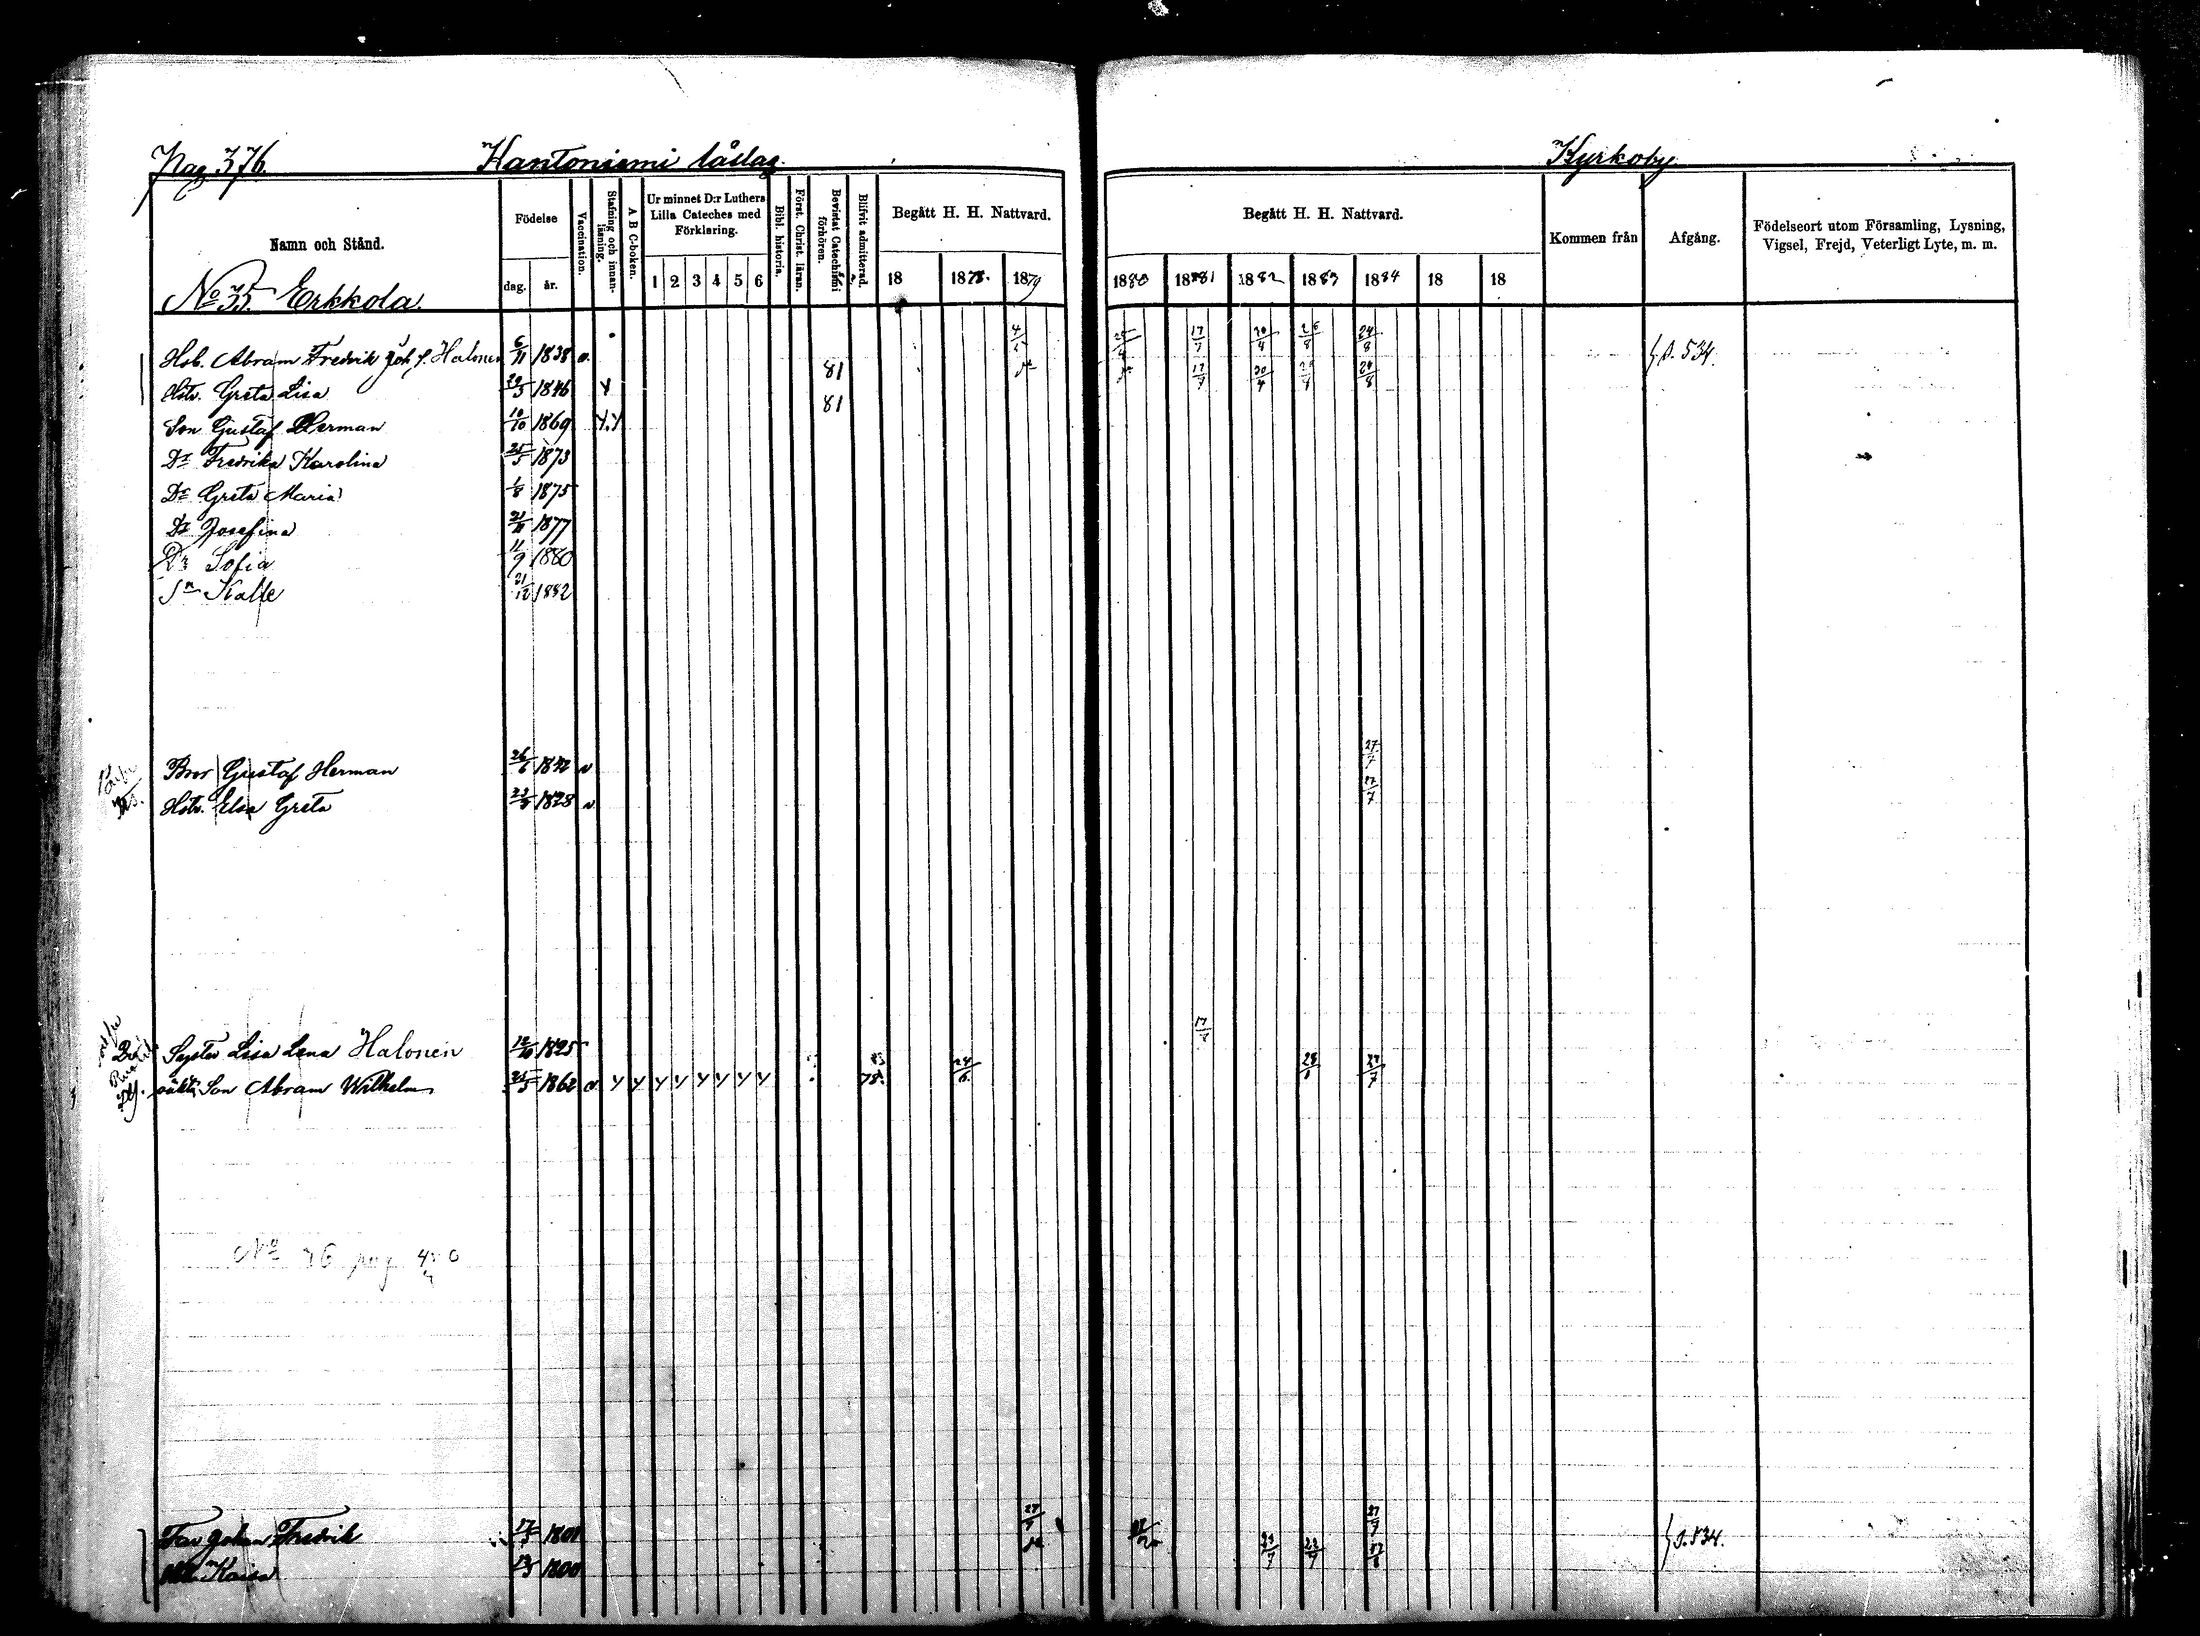 Pag 376. Kantoniemi låslag. Kyrkoby
Namn och Stånd. Födelse dag. år. Vaccination. Stafning och innanläsning. A B C-boken. Ur minnet D:r Luthers Lilla Cateches med Förklaring. 1 2 3 4 5 6 Bibl. historia. Först. Christ. läran. Bevistat Catechismi förhören. Blifvit admitterad. Begått H. H. Nattvard. 18 1878. 1879 Begått H. H. Nattvard. 1880 1881 1882 1883 1884 18 18 Kommen från Afgång. Födelseort utom Församling, Lysning, Vigsel, Frejd, Veterligt Lyte, m. m.
No 35. Erkkola.
Hsb. Abram Fredrik Joh. s. Halonen 6/11 1838 v. 4/5 25/4 17/7 20/4 26/8 24/8 p. 534.
Hstr. Greta Lisa 1846 Y 81 17/7 20/4 24/8
Son Gustaf Herman 10/10 1869 Y.Y 81
Dr Fredrika Karolina 25/5 1873
Dr Greta Maria 1/8 1875
Dr Josefina 1877
Dr Sofia 11/9 1880
Sn Kalle 21/12 1882
Bror Gustaf Herman 26/6 1842 v 27/7
Hstr. Elsa Greta 1828 v 27/7
Syster Lisa Lena Halonen 12/10 1825 17/7
oäkt. Son Abram Wilhelm 25/5 1862 v Y Y Y Y Y Y Y Y 78. 24/6. 27/7
No 36 pag
Far Johan Fredrik 1801 p. 534.
Kaisa 1800